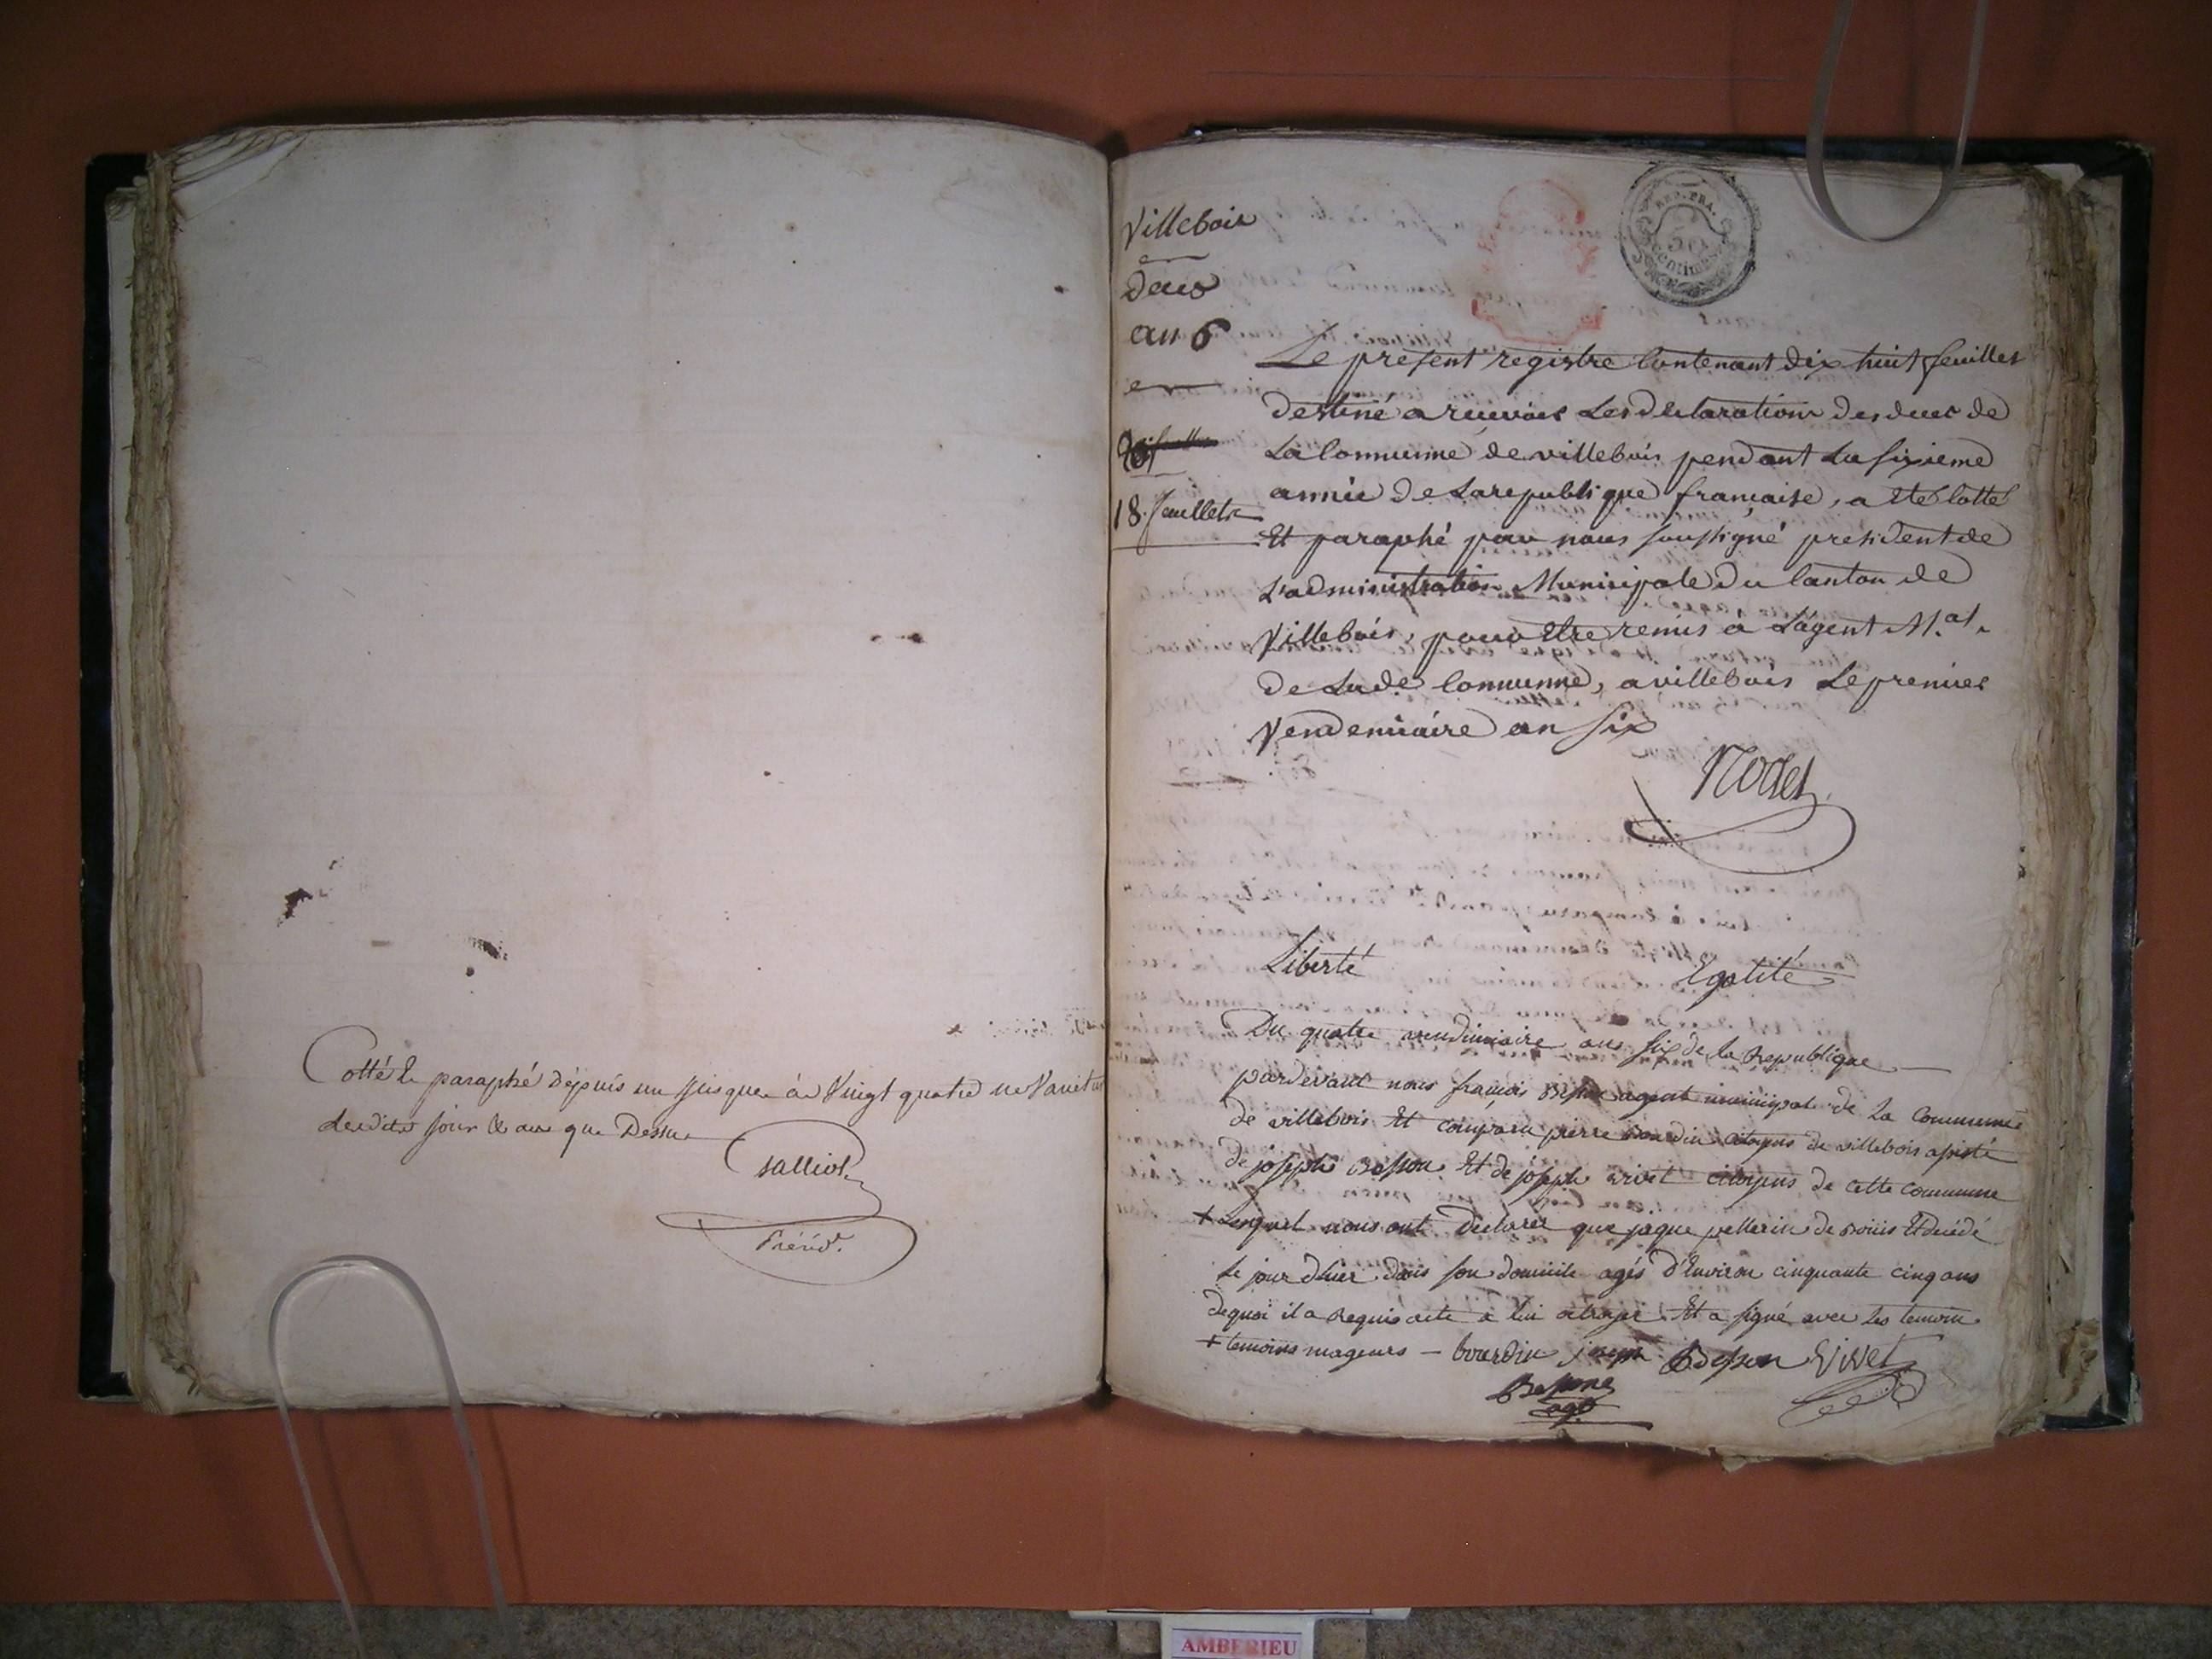 Cotté & paraphé Depuis un jusques à Vingt quatre ne Varietur
lesdits jour & an que Dessus
Salliot
Présid.t
Villebois
deces
an 6
18. feuillets
REP. FRA.
50
centimes
Le present registre Contenant dix huit feuilles
destiné a recevoir Les declarations des deces de
La Commune de villebois pendant La sixieme
année de La republique française, a été Cotté
Et paraphé par nous soussigné president de
L'administration Municipale du Canton de
Villebois, pour Etre remis à L'agent M.al
de Lad.e Commune, a villebois Le premier
Vendemiaire an six
Nodet
Liberté Egalité
Du quatre vendimiaire ans six de la Republique
pardevant nous françois agent municipal de la Commune
de villebois Et comparu pierre Bourdin citoyens de villebois assisté
de joseph Besson Et de joseph vivet citoyens de cette commune
+ Lesquel nous ont declarer que jaque pellerin de Bouis Et decédé
le jour dhier dans son domicile agés d'Environ cinquante cinq ans
dequoi il a Requis acte a lui octroyé Et a signé avec les temoin
+ temoins mageurs — bourdin joseph Besson Vivet
agt
AMBERIEU